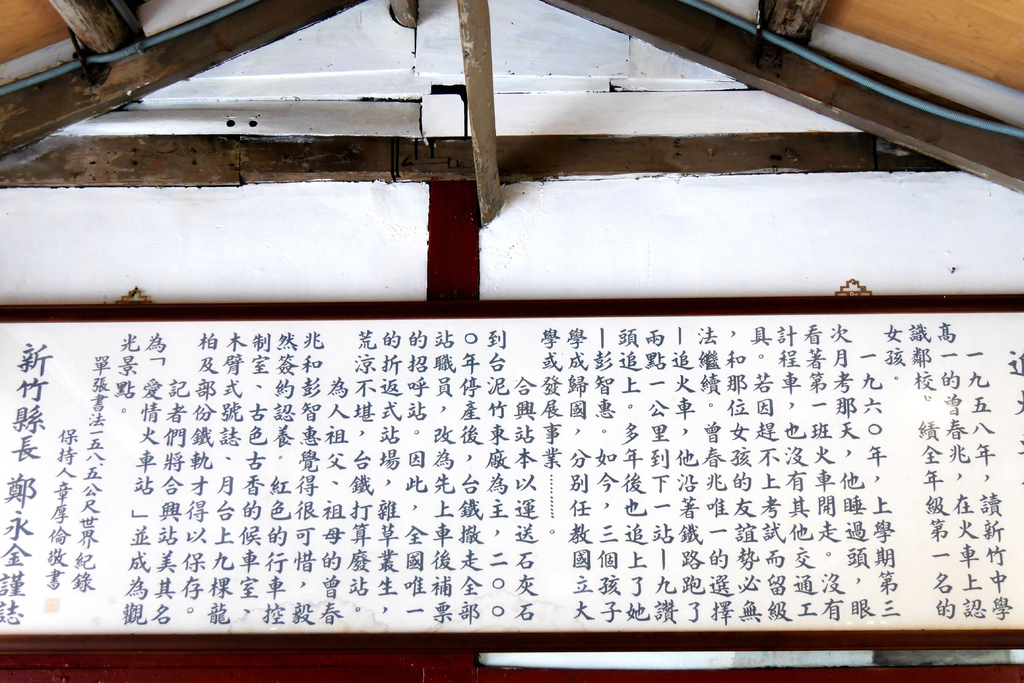 一九五八年，讀新竹中學
高一的曾春兆，在火車上認
識鄰校 績全年級第一名的
女孩。
一九六０年，上學期第三
次月考那天，他睡過頭，眼
看著第一班火車開走。沒有
計程車，也沒有其他交通工
具。若因趕不上考試而留級
，和那位女孩的友誼勢必無
法繼續。曾春兆唯一的選擇
—追火車，他沿著鐵路跑了
兩點一公里到下一站—九讚
頭追上。多年後也追上了她
—彭智惠。如今，三個孩子
學成歸國，分別任教國立大
學或發展事業………。
合興站本以運送石灰石
到台泥竹東廠為主，二００
０年停產後，台鐵撤走全部
站職員，改為先上車後補票
的招呼站。因此，全國唯一
的折返式站場，雜草叢生，
荒涼不堪，台鐵打算廢站。
為人祖父、祖母的曾春
兆和彭智惠覺得很可惜，毅
然簽約認養。紅色的行車控
制室、古色古香的候車室、
木臂式號誌、月台上九棵龍
柏及部份鐵軌才得以保存。
記者們將合興站美其名
為「愛情火車站」並成為觀
光景點。
單張書法一五八.五公尺世界紀錄
保持人章厚倫敬書
新竹縣長 鄭永金謹誌